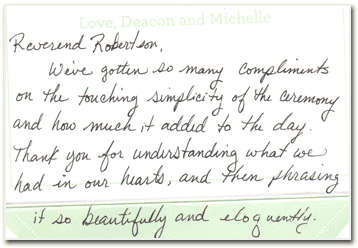 Love, Deacon and Michelle
Reverend Robertson,
We've gotten so many compliments
on the touching simplicity of the ceremony
and how much it added to the day.
Thank you for understanding what we
had in our hearts, and then phrasing
it so beautifully and eloquently.